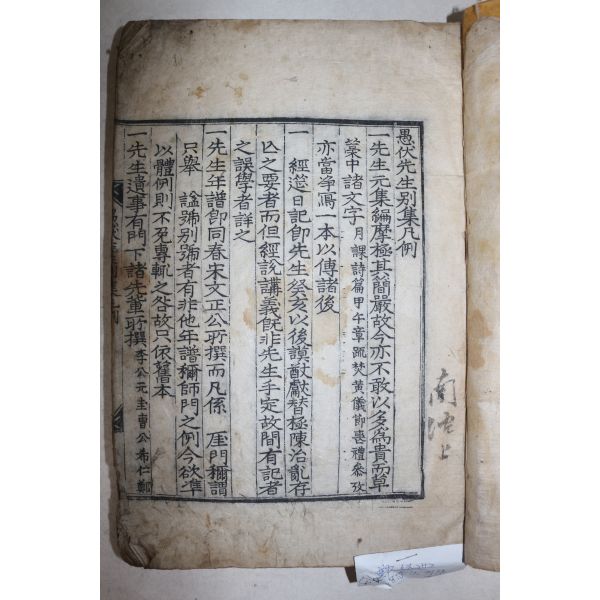 愚伏先生別集凡例
一先生元集編摩極其簡嚴故今亦不敢以多爲貴而草
藁中諸文字月課詩篇甲午章疏焚黃儀節喪禮參攷
亦當净寫一本以傳諸後
一 經筵日記卽先生癸亥以後謨猷獻替極陳治亂存
亾之要者而但經說講義旣非先生手定故間有記者
之誤學者詳之
一先生年譜卽同春宋文正公所撰而凡係 座門稱謂
只擧 諡號別號者有非他年譜稱師門之例今欲準
以體例則不免專輒之咎故只依舊本
一先生遺事有門下諸先輩所撰李公元圭曺公希仁鄭
南
上